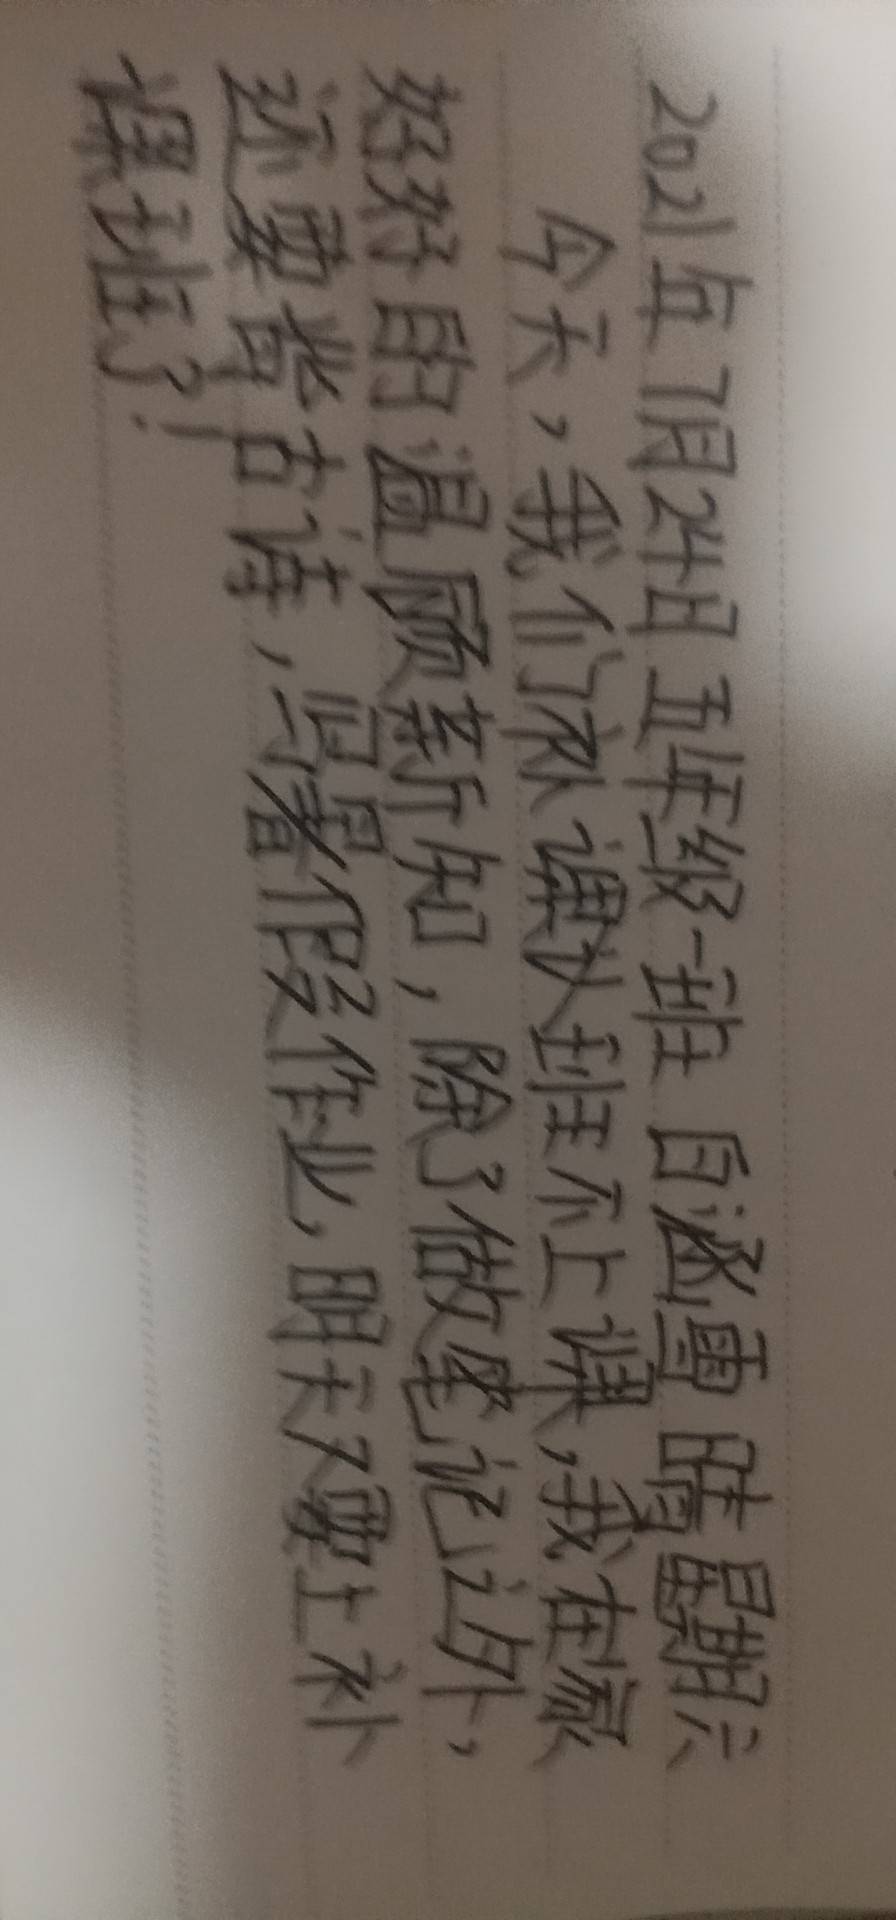 2021年7月24日 五年级一班 白涵雪 晴 星期六
今天，我们补课班不上课，我在家
好好的温顾新知，除了做笔记之外，
还要背古诗，写暑假作业，明天又要上补
课班了！